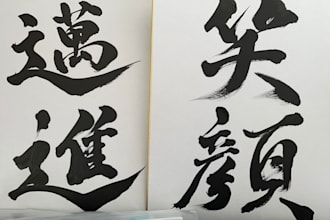 笑顔
邁進